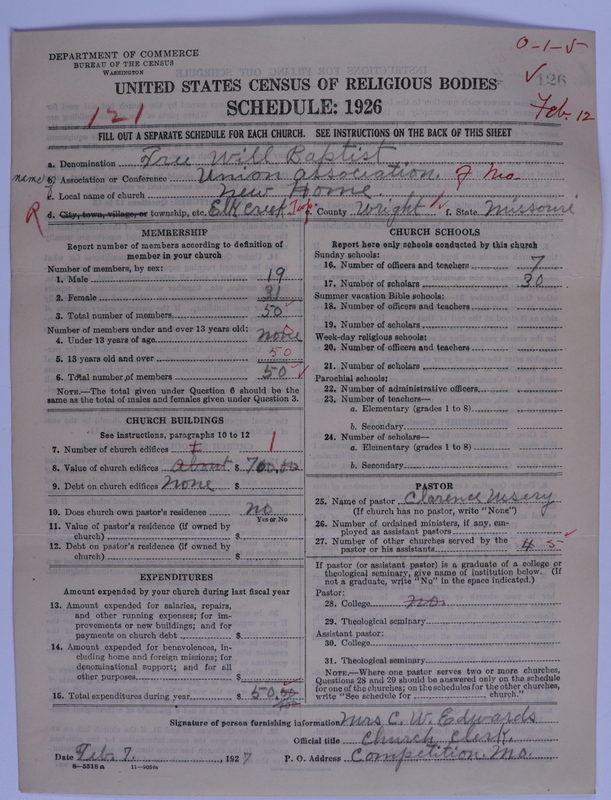 0-1-5
DEPARTMENT OF COMMERCE
BUREAU OF THE CENSUS
WASHINGTON
126
UNITED STATES CENSUS OF RELIGIOUS BODIES
121
SCHEDULE: 1926
Feb. 12
FILL OUT A SEPARATE SCHEDULE FOR EACH CHURCH. SEE INSTRUCTIONS ON THE BACK OF THIS SHEET
a. Denomination Free Will Baptist
name of b. Association or Conference Union association. of Mo.
c. Local name of church New Home
R d. City, town, village, or township, etc. Elk Creek Twp. e. County Wright f. State Missouri
MEMBERSHIP
Report number of members according to definition of
member in your church
Number of members, by sex:
1. Male 19
2. Female 31
3. Total number of members 50
Number of members under and over 13 years old:
4. Under 13 years of age none
5. 13 years old and over 50
6. Total number of members 50
NOTE.—The total given under Question 6 should be the
same as the total of males and females given under Question 3.
CHURCH BUILDINGS
See instructions, paragraphs 10 to 12
7. Number of church edifices 1 1
8. Value of church edifices about $ 700.00
9. Debt on church edifices none $
10. Does church own pastor's residence no
Yes or No
11. Value of pastor's residence (if owned by
church) $
12. Debt on pastor's residence (if owned by
church) $
EXPENDITURES
Amount expended by your church during last fiscal year
13. Amount expended for salaries, repairs,
and other running expenses; for im-
provements or new buildings; and for
payments on church debt $
14. Amount expended for benevolences, in-
cluding home and foreign missions; for
denominational support; and for all
other purposes $
15. Total expenditures during year $ 50.00
CHURCH SCHOOLS
Report here only schools conducted by this church
Sunday schools:
16. Number of officers and teachers 7
17. Number of scholars 30
Summer vacation Bible schools:
18. Number of officers and teachers
19. Number of scholars
Week-day religious schools:
20. Number of officers and teachers
21. Number of scholars
Parochial schools:
22. Number of administrative officers
23. Number of teachers—
a. Elementary (grades 1 to 8)
b. Secondary
24. Number of scholars—
a. Elementary (grades 1 to 8)
b. Secondary
PASTOR
25. Name of pastor Clarence Ussery
(If church has no pastor, write "None")
26. Number of ordained ministers, if any, em-
ployed as assistant pastors
27. Number of other churches served by the
pastor or his assistants 4 5
If pastor (or assistant pastor) is a graduate of a college or
theological seminary, give name of institution below. (If
not a graduate, write "No" in the space indicated.)
Pastor:
28. College no.
29. Theological seminary
Assistant pastor:
30. College
31. Theological seminary
NOTE.—Where one pastor serves two or more churches,
Questions 28 and 29 should be answered only on the schedule
for one of the churches; on the schedules for the other churches,
write "See schedule for church."
Signature of person furnishing information Mrs C. W. Edwards
Official title Church Clerk.
Date Feb 7. 1927 P. O. Address Competition. Mo.
8—5518a 11—9050a